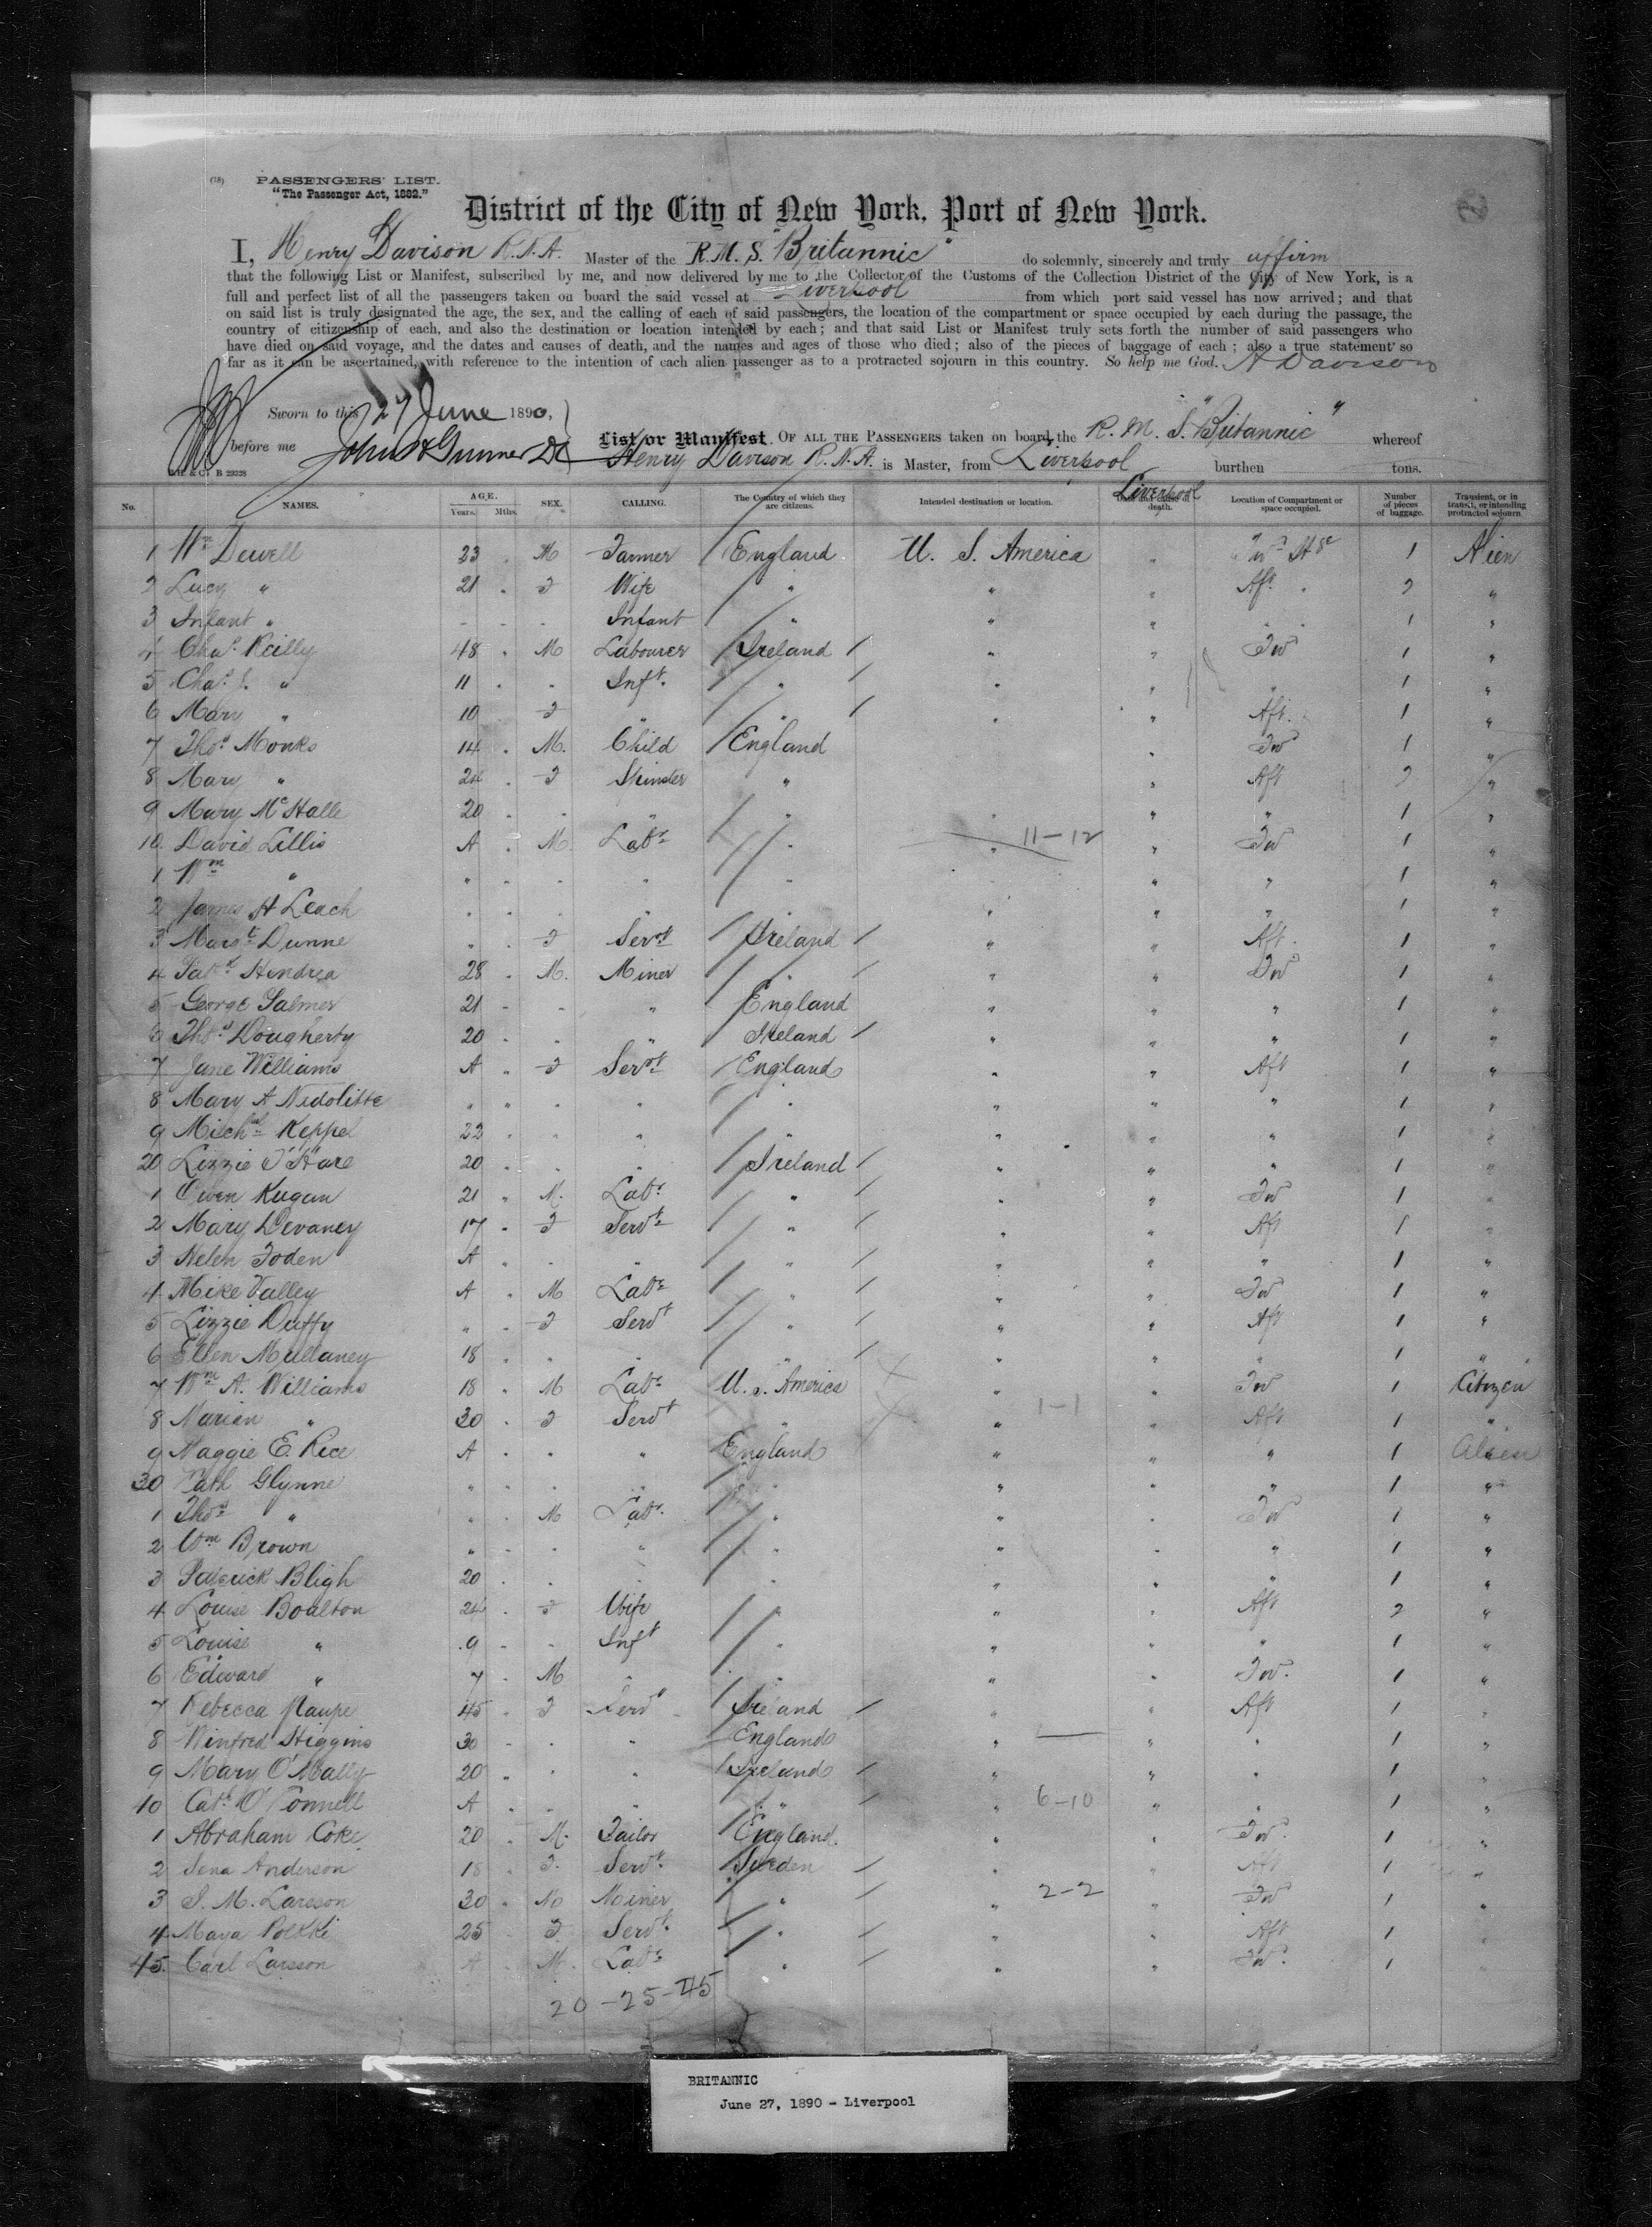 (18) PASSENGERS' LIST.
"The Passenger Act, 1882."
District of the City of New York, Port of New York.
I, Henry Davison R.N.R. Master of the R.M.S. "Britannic" do solemnly, sincerely and truly affirm
that the following List or Manifest, subscribed by me, and now delivered by me to the Collector of the Customs of the Collection District of the City of New York, is a
full and perfect list of all the passengers taken on board the said vessel at Liverpool from which port said vessel has now arrived; and that
on said list is truly designated the age, the sex, and the calling of each of said passengers, the location of the compartment or space occupied by each during the passage, the
country of citizenship of each, and also the destination or location intended by each; and that said List or Manifest truly sets forth the number of said passengers who
have died on said voyage, and the dates and causes of death, and the names and ages of those who died; also of the pieces of baggage of each; also a true statement so
far as it can be ascertained, with reference to the intention of each alien passenger as to a protracted sojourn in this country. So help me God. H Davison
Sworn to this 27 June 1890,
before me
List or Manifest. OF ALL THE PASSENGERS taken on board the R.M.S. "Britannic" whereof
Henry Davison R.N.R. is Master, from Liverpool burthen tons.
B 29328
Liverpool
No. NAMES. AGE. Years. Mths. SEX. CALLING. The Country of which they are citizens. Intended destination or location. death. Location of Compartment or space occupied. Number of pieces of baggage. Transient, or in transit, or intending protracted sojourn
1 Wm Dewell 23 " M Farmer England U. S. America " 1 Alien
2 Lucy " 21 " F Wife " " " Aft " 2 "
3 Infant " - - - Infant " " " " 1 "
4 Chas. Reilly 48 " M Labourer Ireland " " Fwd 1 "
5 Chas. J. " 11 " " Inft. " " " " 1 "
6 Mary " 10 F " " " " Aft. 1 "
7 Thos. Monks 14 " M. Child England " Fwd 1 "
8 Mary " 24 " F Spinster " " Aft 2 "
9 Mary McHalle 20 " " " " " " " 1 "
10 David Lillis A " M Labr " " 11-12 " Fwd 1 "
1 Wm " " " " " " " " " 1 "
2 James H Leach " " " " " " " " 1 "
3 Margt Dunne " " F Servt Ireland " " Aft. 1 "
4 Patk Hendrea 28 " M. Miner " " " Fwd 1 "
5 George Palmer 21 " " " England " " " 1 "
6 Thos. Dougherty 20 " " " Ireland " " " 1 "
7 Jane Williams A " F Servt England " " Aft 1 "
8 Mary A " " " " " " " " 1 "
9 Michal Keppel 22 " " " " " " " 1 "
20 Lizzie O'Hare 20 " " " Ireland " " " 1 "
1 Owen Kugan 21 " M. Labr " " " Fwd 1 "
2 Mary Devaney 17 " F Servt " " " Aft 1 "
3 Helen Foden A " " " " " " " 1 "
4 Mike Valley A " M Labr " " " Fwd 1 "
5 Lizzie Duffy " " F Servt " " " Aft 1 "
6 Ellen Mullaney 18 " " " " " " " 1 "
7 Wm A. Williams 18 " M Labr U.S. America " " Fwd 1 Citizen
8 Marian " 30 " F Servt " " 1-1 " Aft 1 "
9 Maggie E. Rice A " " " England " " " 1 Alien
30 Cath Glynne " " " " " " " " 1 "
1 Thos " " " M Labr. " " " Fwd 1 "
2 Wm Brown " " " " " " " " 1 "
3 Paterick Bligh 20 " " " " " " " 1 "
4 Louise Boulton 24 " F Wife " " " Aft 2 "
5 Louise " 9 " " Inft " " " " 1 "
6 Edward " 7 " M " " " " Fwd. 1 "
7 Rebecca Maupe 45 " F Servt Ireland " " Aft 1 "
8 Winfred Higgins 30 " " " England " " " 1 "
9 Mary O'Mally 20 " " " Ireland " " " 1 "
40 Cath O'Connell A " " " " " 6-10 " " 1 "
1 Abraham Coke 20 " M. Tailor England. " " Fwd. 1 "
2 Sena Anderson 18 " F. Servt Sweden " " Aft 1 "
3 S. M. Larsson 30 " M Miner " " 2-2 " Fwd 1 "
4 Maya 25 " F. Servt. " " " Aft 1 "
45. Carl Larsson A " M. Labr " " " Fwd. 1 "
20-25-45
BRITANNIC
June 27, 1890 - Liverpool